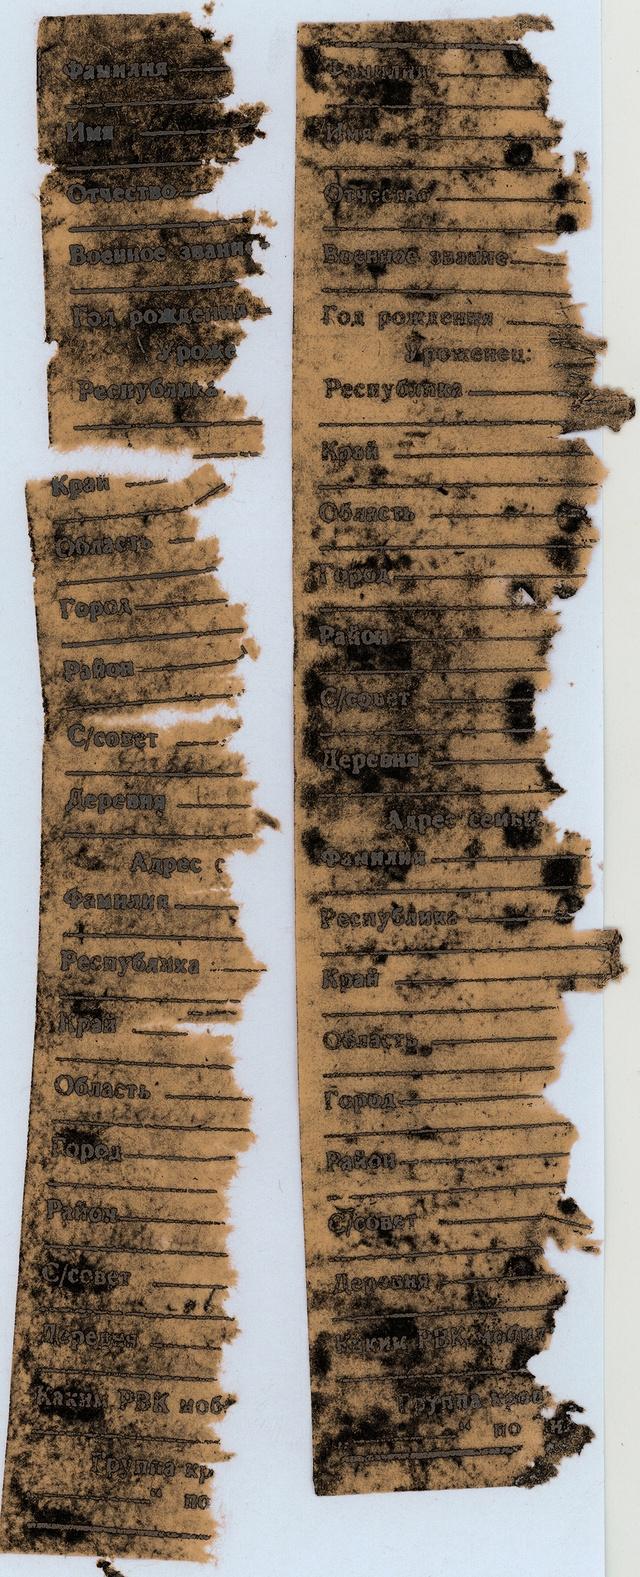 Фамилия
Имя
Отчество
Военное звание
Год рождения
Уроже
Республика
Край
Область
Город
Район
С/совет
Деревня
Адрес с
Фамилия
Республика
Край
Область
Город
Район
С/совет
Деревня
Каким РВК моб
Группа кр
" по
Фамилия
Имя
Отчество
Военное звание
Год рождения
Уроженец:
Республика
Край
Область
Город
Район
С/совет
Деревня
Адрес семьи
Фамилия
Республика
Край
Область
Город
Район
С/совет
Деревня
Каким РВК мобил
Группа кров
" по